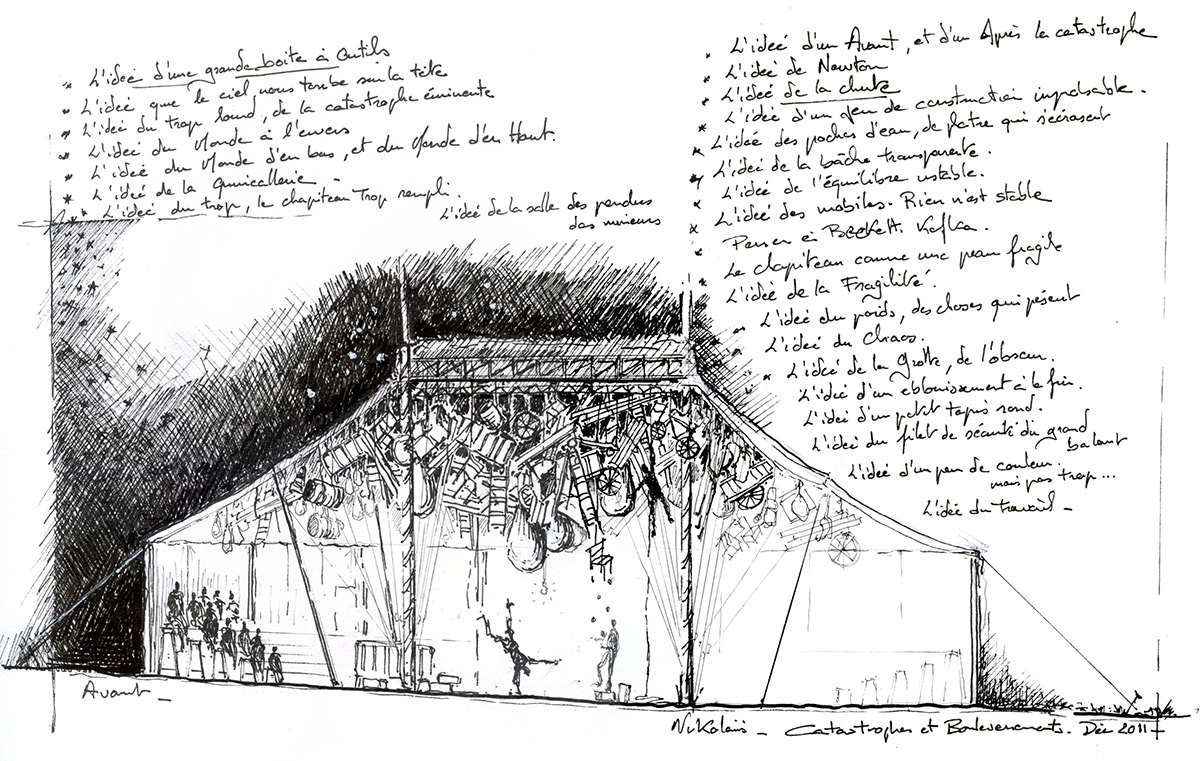 * L'ideé d'une grande boite à Outils
* L'ideé que le ciel nous tombe sur la tête
* L'ideé du trop lourd, de la catastrophe éminente
* L'ideé du Monde à l'envers
* L'ideé du Monde d'en bas, et du Monde d'en Haut.
* L'ideé de la Quincallerie -
* L'ideé du trop, le chapiteau Trop rempli.
L'ideé de la salle des pendus
des mineurs
* L'ideé d'un Avant, et d'un Après la catastrophe
* L'ideé de Newton
* L'ideé de la chute
* L'ideé d'un Jeu de construction impossible.
* L'ideé des poches d'eau, de platre qui s'écrasent
* L'ideé de la bâche transparente.
* L'ideé de l'équilibre instable.
* L'ideé des mobiles. Rien n'est stable
Penser à Beckett. Kafka.
Le chapiteau comme une peau fragile
L'ideé de la Fragilité.
L'ideé du poids, des choses qui pèsent
L'ideé du Chaos.
* L'ideé de la grotte, de l'obscur.
L'ideé d'un eblouissement à la fin.
L'ideé d'un petit tapis rond.
L'ideé du filet de sécurité du grand
balant
L'ideé d'un peu de couleur
mais pas trop...
L'idée du travail -
Avant -
Nikolaüs - Catastrophes et Bouleversements. Déc 2011